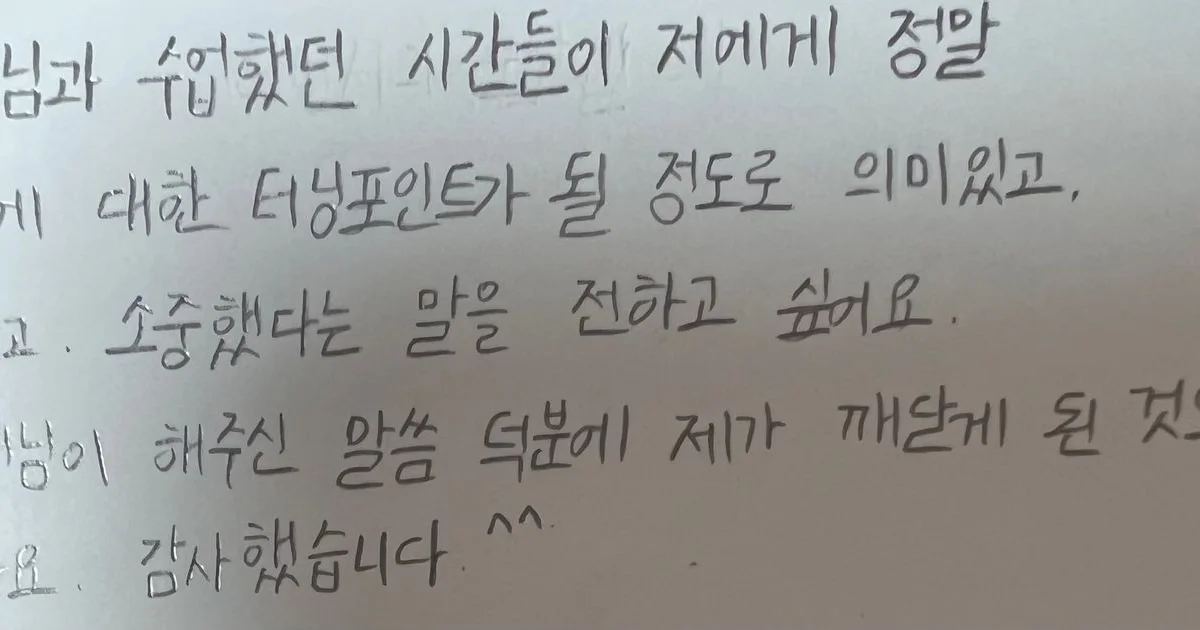 님과 수업했던 시간들이 저에게 정말
에 대한 터닝포인트가 될 정도로 의미있고,
고. 소중했다는 말을 전하고 싶어요.
님이 해주신 말씀 덕분에 제가 깨달게 된 것
요. 감사했습니다. ^^